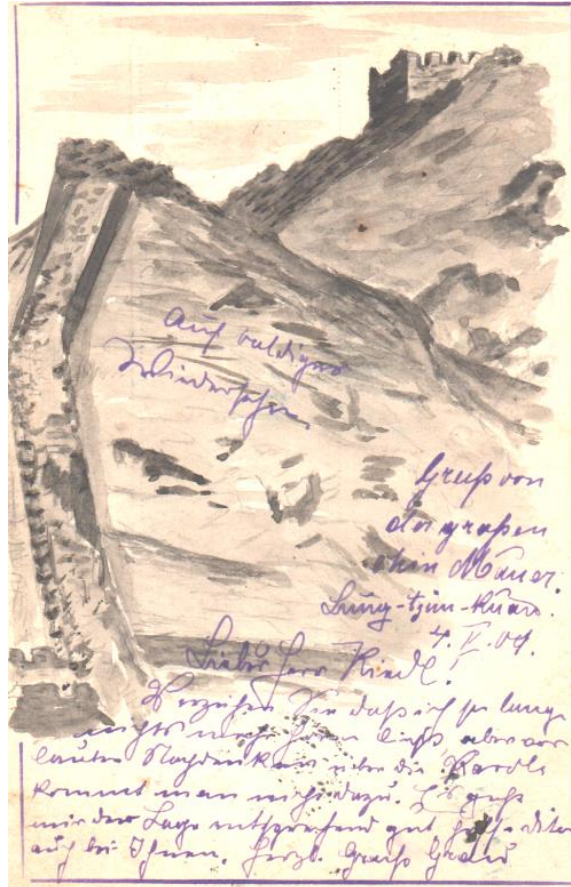 Auf baldiges
Wiedersehen.
Gruß von
der großen
chin Mauer.
4. V. 09.
Lieber Herr Riedl!
Verzeihen Sie daß ich so lang
nichts mehr hören ließ, aber vor
lauter Nachdenken über die
kommt man nicht dazu. Es geht
mir der Lage entsprechend gut, hoff. dito
auch bei Ihnen. Herzl. Gruß